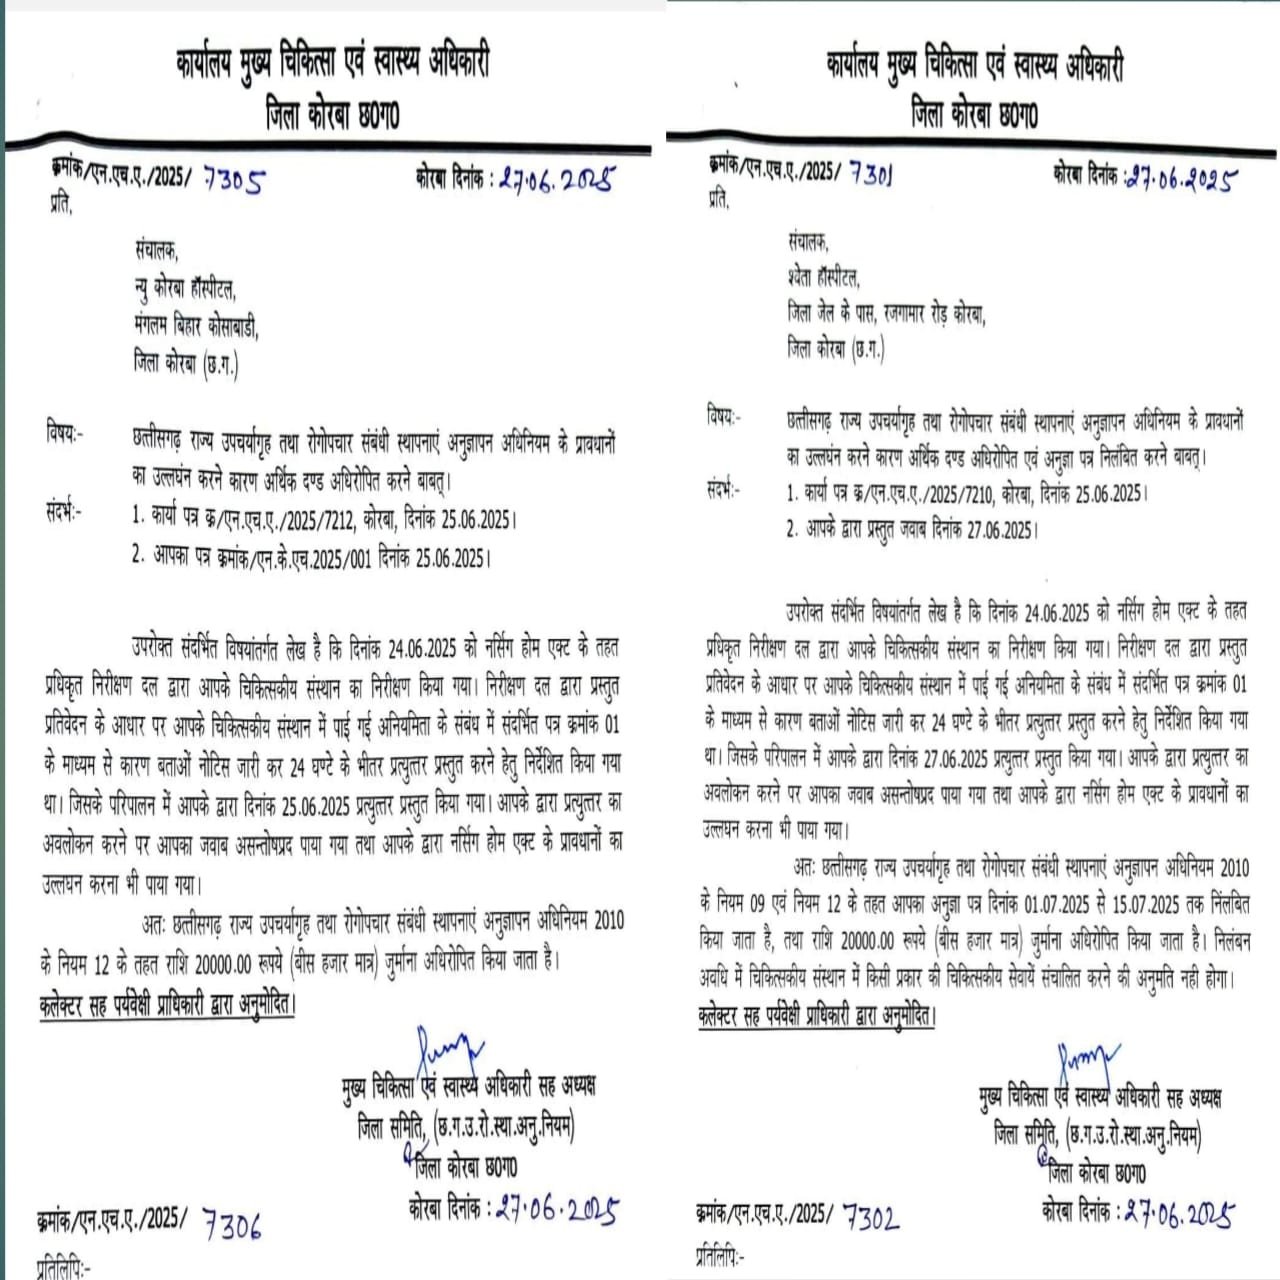 कार्यालय मुख्य चिकित्सा एवं स्वास्थ्य अधिकारी
जिला कोरबा छ0ग0
क्रमांक/एन.एच.ए./2025/ 7305 कोरबा दिनांक : 27.06.2025
प्रति,
संचालक,
न्यु कोरबा हॉस्पीटल,
मंगलम बिहार कोसाबाडी,
जिला कोरबा (छ.ग.)
विषयः- छत्तीसगढ़ राज्य उपचर्यागृह तथा रोगोपचार संबंधी स्थापनाएं अनुज्ञापन अधिनियम के प्रावधानों
का उल्लघंन करने कारण अर्थिक दण्ड अधिरोपित करने बाबत्।
संदर्भः- 1. कार्या पत्र क्र/एन.एच.ए./2025/7212, कोरबा, दिनांक 25.06.2025।
2. आपका पत्र क्रमांक/एन.के.एच.2025/001 दिनांक 25.06.2025।
उपरोक्त संदर्भित विषयांतर्गत लेख है कि दिनांक 24.06.2025 को नर्सिग होम एक्ट के तहत
प्रधिकृत निरीक्षण दल द्वारा आपके चिकित्सकीय संस्थान का निरीक्षण किया गया। निरीक्षण दल द्वारा प्रस्तुत
प्रतिवेदन के आधार पर आपके चिकित्सकीय संस्थान में पाई गई अनियमिता के संबंध में संदर्भित पत्र क्रमांक 01
के माध्यम से कारण बताओं नोटिस जारी कर 24 घण्टे के भीतर प्रत्युत्तर प्रस्तुत करने हेतु निर्देशित किया गया
था। जिसके परिपालन में आपके द्वारा दिनांक 25.06.2025 प्रत्युत्तर प्रस्तुत किया गया। आपके द्वारा प्रत्युत्तर का
अवलोकन करने पर आपका जवाब असन्तोषप्रद पाया गया तथा आपके द्वारा नर्सिग होम एक्ट के प्रावधानों का
उल्लघन करना भी पाया गया।
अतः छत्तीसगढ़ राज्य उपचर्यागृह तथा रोगोपचार संबंधी स्थापनाएं अनुज्ञापन अधिनियम 2010
के नियम 12 के तहत राशि 20000.00 रूपये (बीस हजार मात्र) जुर्माना अधिरोपित किया जाता है।
कलेक्टर सह पर्यवेक्षी प्राधिकारी द्वारा अनुमोदित।
मुख्य चिकित्सा एवं स्वास्थ्य अधिकारी सह अध्यक्ष
जिला समिति, (छ.ग.उ.रो.स्था.अनु.नियम)
जिला कोरबा छ0ग0
क्रमांक/एन.एच.ए./2025/ 7306 कोरबा दिनांक : 27.06.2025
प्रतिलिपिः-
कार्यालय मुख्य चिकित्सा एवं स्वास्थ्य अधिकारी
जिला कोरबा छ0ग0
क्रमांक/एन.एच.ए./2025/ 7301 कोरबा दिनांक : 27.06.2025
प्रति,
संचालक,
श्वेता हॉस्पीटल,
जिला जेल के पास, रजगामार रोड़ कोरबा,
जिला कोरबा (छ.ग.)
विषयः- छत्तीसगढ़ राज्य उपचर्यागृह तथा रोगोपचार संबंधी स्थापनाएं अनुज्ञापन अधिनियम के प्रावधानों
का उल्लघंन करने कारण अर्थिक दण्ड अधिरोपित एवं अनुज्ञा पत्र निलंबित करने बाबत्।
संदर्भः- 1. कार्या पत्र क्र/एन.एच.ए./2025/7210, कोरबा, दिनांक 25.06.2025।
2. आपके द्वारा प्रस्तुत जवाब दिनांक 27.06.2025।
उपरोक्त संदर्भित विषयांतर्गत लेख है कि दिनांक 24.06.2025 को नर्सिग होम एक्ट के तहत
प्रधिकृत निरीक्षण दल द्वारा आपके चिकित्सकीय संस्थान का निरीक्षण किया गया। निरीक्षण दल द्वारा प्रस्तुत
प्रतिवेदन के आधार पर आपके चिकित्सकीय संस्थान में पाई गई अनियमिता के संबंध में संदर्भित पत्र क्रमांक 01
के माध्यम से कारण बताओं नोटिस जारी कर 24 घण्टे के भीतर प्रत्युत्तर प्रस्तुत करने हेतु निर्देशित किया गया
था। जिसके परिपालन में आपके द्वारा दिनांक 27.06.2025 प्रत्युत्तर प्रस्तुत किया गया। आपके द्वारा प्रत्युत्तर का
अवलोकन करने पर आपका जवाब असन्तोषप्रद पाया गया तथा आपके द्वारा नर्सिग होम एक्ट के प्रावधानों का
उल्लघन करना भी पाया गया।
अतः छत्तीसगढ़ राज्य उपचर्यागृह तथा रोगोपचार संबंधी स्थापनाएं अनुज्ञापन अधिनियम 2010
के नियम 09 एवं नियम 12 के तहत आपका अनुज्ञा पत्र दिनांक 01.07.2025 से 15.07.2025 तक निंलबित
किया जाता है, तथा राशि 20000.00 रूपये (बीस हजार मात्र) जुर्माना अधिरोपित किया जाता है। निलंबन
अवधि में चिकित्सकीय संस्थान में किसी प्रकार की चिकित्सकीय सेवायें संचालित करने की अनुमति नही होगा।
कलेक्टर सह पर्यवेक्षी प्राधिकारी द्वारा अनुमोदित।
मुख्य चिकित्सा एवं स्वास्थ्य अधिकारी सह अध्यक्ष
जिला समिति, (छ.ग.उ.रो.स्था.अनु.नियम)
जिला कोरबा छ0ग0
क्रमांक/एन.एच.ए./2025/ 7302 कोरबा दिनांक : 27.06.2025
प्रतिलिपिः-